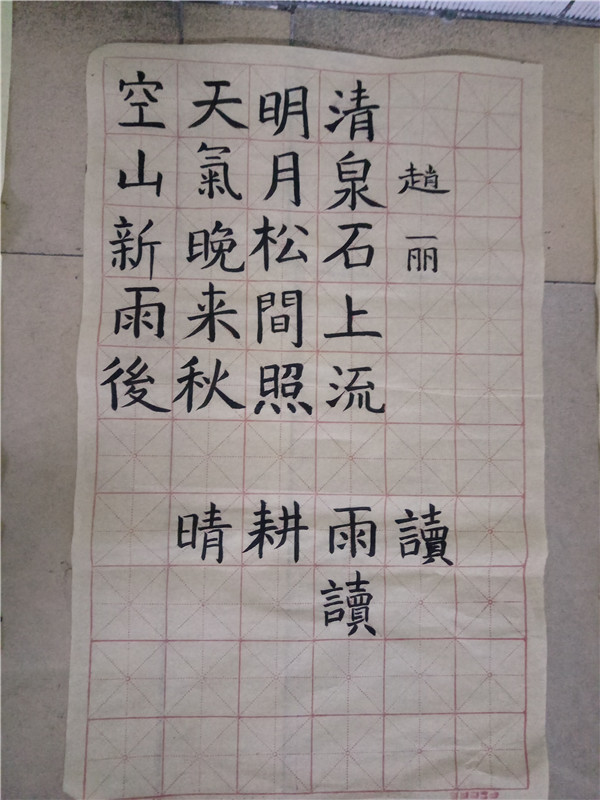 空山新雨後
天氣晚来秋
明月松間照
清泉石上流
趙丽
晴耕雨讀
讀